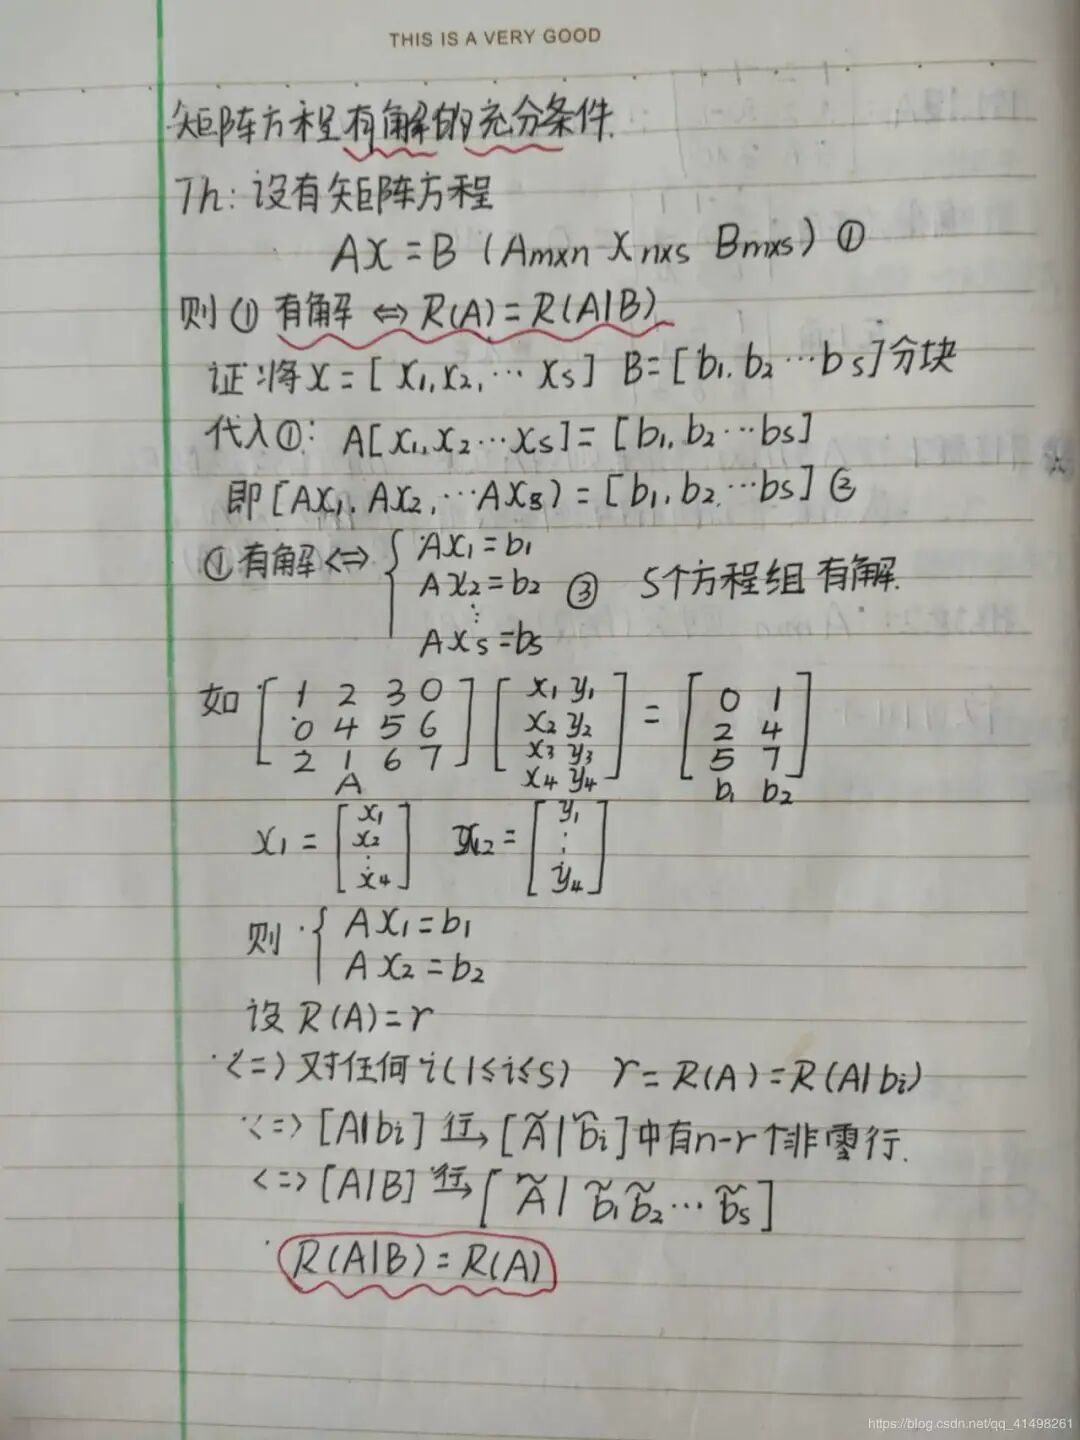 THIS IS A VERY GOOD
矩阵方程有解的充分条件.
Th: 设有矩阵方程
AX = B (Amxn Xnxs Bmxs) ①
则①有解 ⇔ R(A) = R(A|B)
证:将X = [X1, X2, … Xs] B = [b1, b2 … bs]分块
代入①: A[X1, X2 … Xs] = [b1, b2 … bs]
即 [AX1, AX2, … AXs) = [b1, b2 … bs] ②
①有解 <=> { AX1 = b1
AX2 = b2 ③ S个方程组有解.
⋮
AXs = bs
如 [ 1 2 3 0 ] [ x1 y1 ] = [ 0 1 ]
0 4 5 6 x2 y2 2 4
2 1 6 7 x3 y3 5 7
A x4 y4 b1 b2
X1 = [ x1 x2 ⋮ x4 ] X2 = [ y1 ⋮ y4 ]
则 { AX1 = b1
AX2 = b2
设 R(A) = r
<=> 对任何 i (1≤i≤s) r = R(A) = R(A|bi)
<=> [A|bi] 行→ [Ã|b̃i]中有n-r个非零行.
<=> [A|B] 行→ [Ã| b̃1 b̃2 … b̃s]
R(A|B) = R(A)
https://blog.csdn.net/qq_41498261